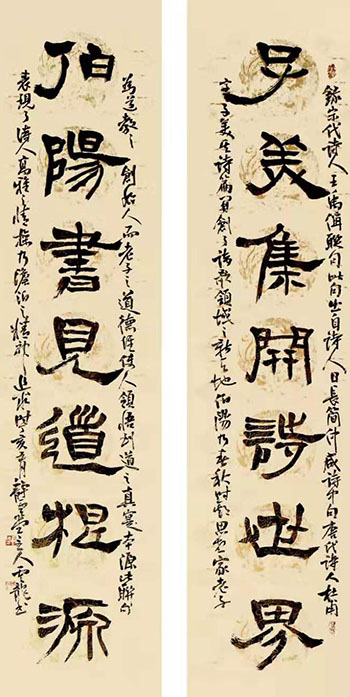 錄宋代詩人王禹偁聯句此句出自詩人日長簡仲咸詩中句唐代詩人杜甫
子美集開詩世界
字子美其詩篇開創了詩歌領域之新天地伯陽乃春秋時期思想家老子
為道教之創始人而老子之道德經使人領悟到道之真寔本源此聯
伯陽書見道根源
表現了詩人高雅之情操乃澹泊之精神追求時亥主人雲龍書